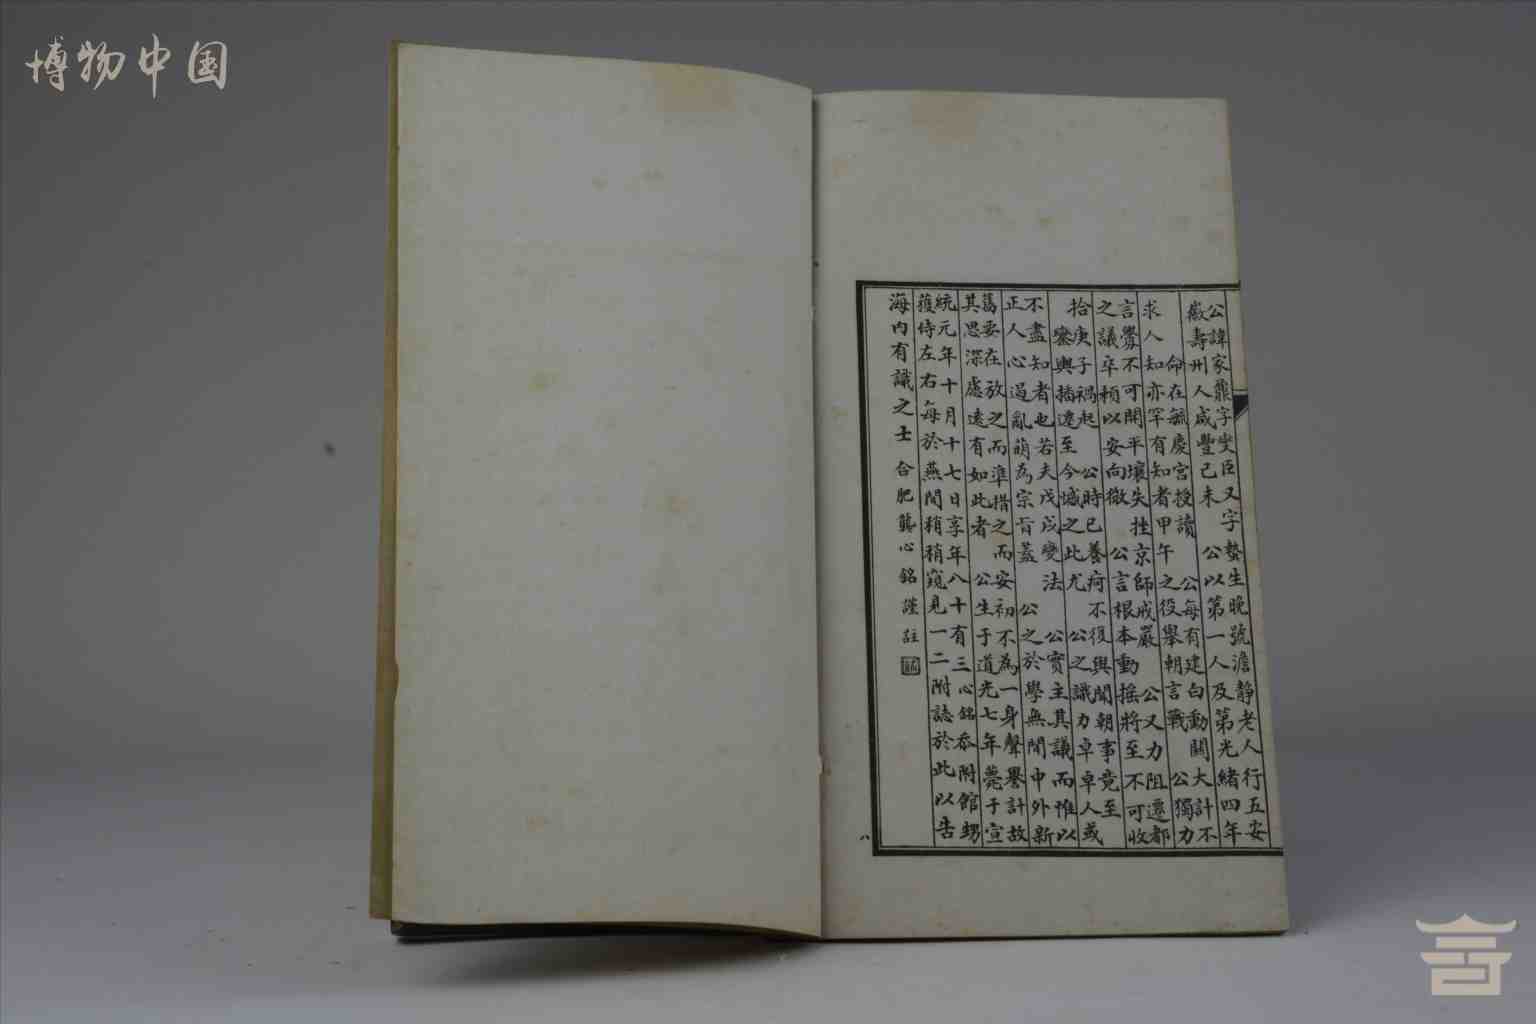 博物中国
公諱家鼐字燮臣又字蟄生晚號澹靜老人行五安
徽壽州人咸豐己未 公以第一人及第光緒四年
命在毓慶宮授讀 公每有建白動關大計不
求人知亦罕有知者甲午之役舉朝言戰 公獨力
言釁不可開平壤失挫京師戒嚴 公又力阻遷都
之議卒賴以安向微 公言根本動搖將至不可收
拾庚子禍起 公時已養疴不復與聞朝事竟至
鑾輿播遷至今憾之此尤 公之識力卓卓人或
不盡知者也若夫戊戌變法 公實主其議而惟以
正人心遏亂萌為宗旨蓋 公之於學無間中外新
舊要在放之而準措之而安初不為一身聲譽計故
其思深慮遠有如此者 公生于道光七年薨于宣
統元年十月十七日享年八十有三心銘忝附館甥
獲侍左右每於燕間稍稍窺見一二附誌於此以告
海內有識之士 合肥龔心銘謹註
八